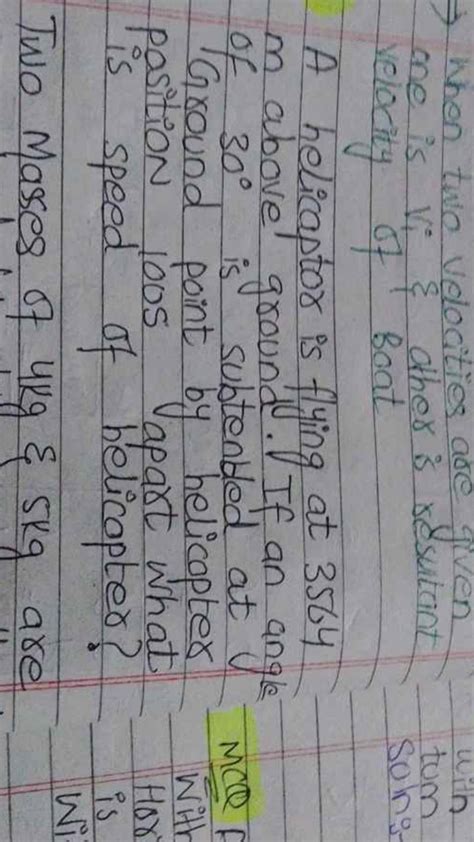 → when two velocities are given
one is Vi & other is resutant
velocity of Boat
A helicaptor is flying at 3564
m above ground. If an angle
of 30° is subtended at
Ground point by helicopter
position 100s apart what
is speed of helicopter?
Two Masses of 4kg & 5kg are
with
tum
Soln:
MCQ
With
Hor
is
Wi